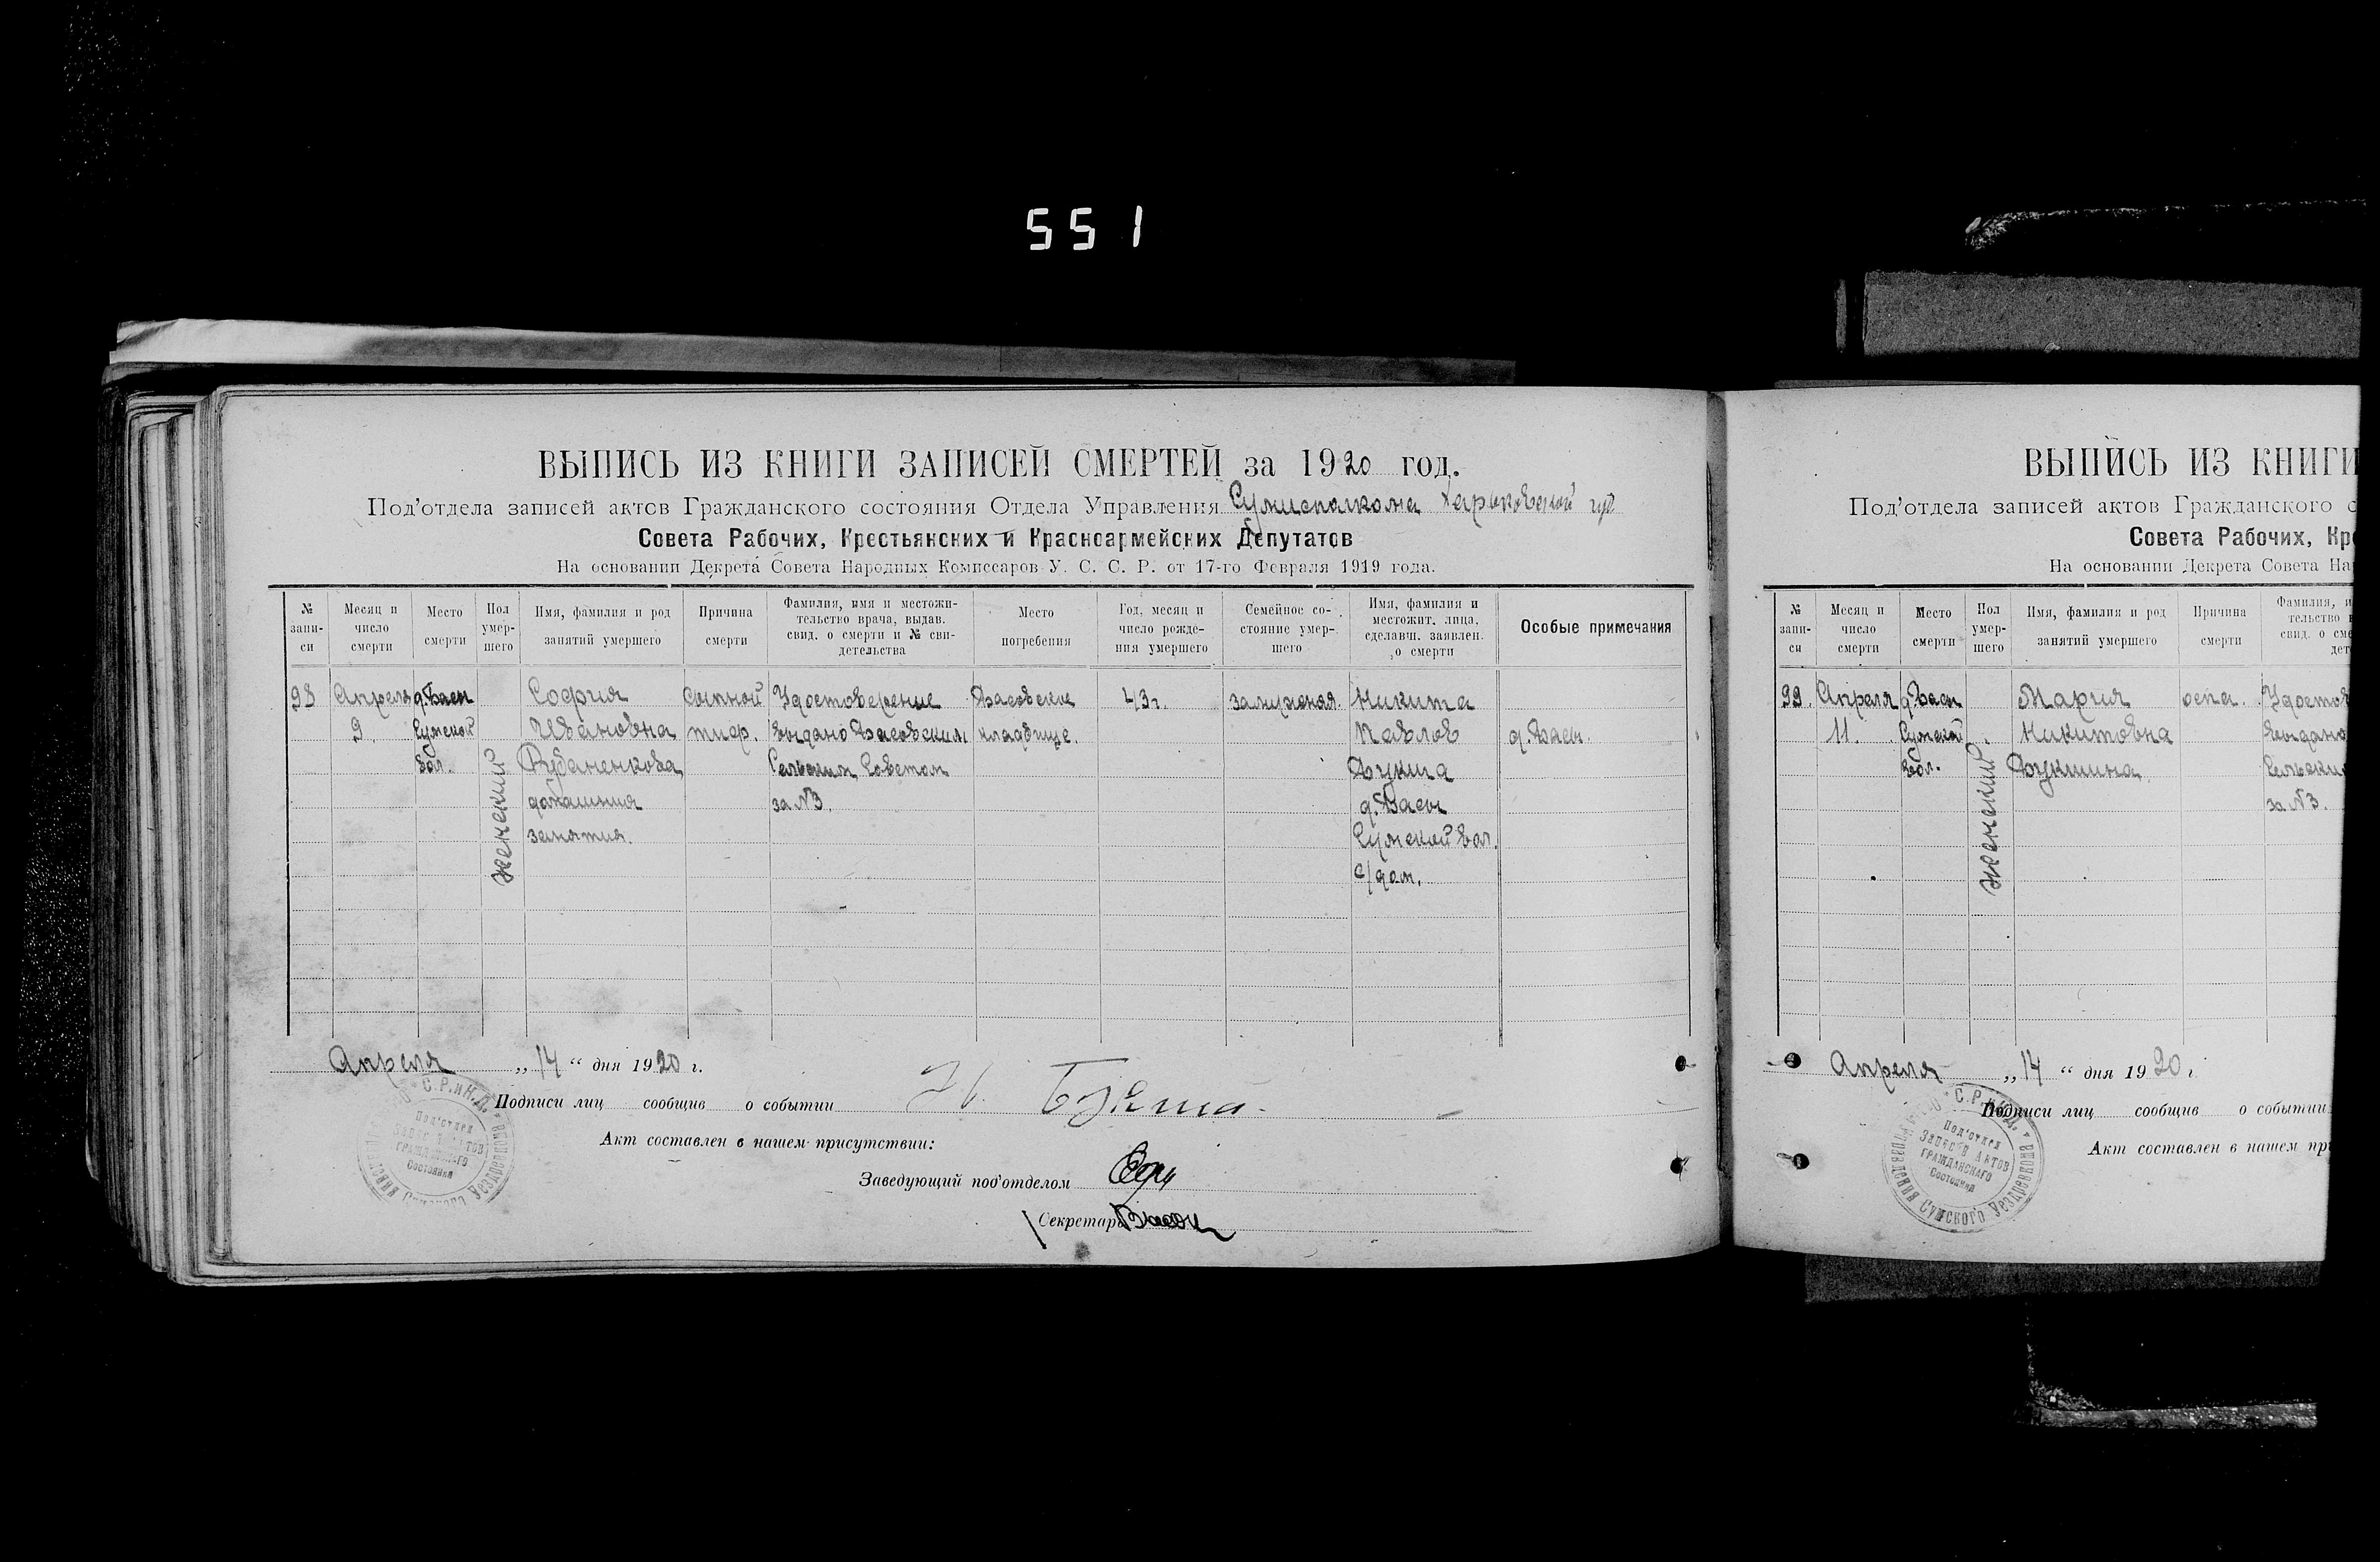 551
ВЫПИСЬ ИЗ КНИГИ ЗАПИСЕЙ СМЕРТЕЙ за 1920 год.
Под'отдела записей актов Гражданского состояния Отдела Управления Сумисполкома Харьковской губ
Совета Рабочих, Крестьянских и Красноармейских Депутатов
На основании Декрета Совета Народных Комиссаров У. С. С. Р. от 17-го Февраля 1919 года.
№ запи-
си
Месяц и
число
смерти
Место
смерти
Пол
умер-
шего
Имя, фамилия и род
занятий умершего
Причина
смерти
Фамилия, имя и местожи-
тельство врача, выдав.
свид. о смерти и № сви-
детельства
Место
погребения
Год, месяц и
число рожде-
ния умершего
Семейное со-
стояние умер-
шего
Имя, фамилия и
местожит. лица,
сделавш. заявлен.
о смерти
Особые примечания
98
Апреля
9.
д. Басы
Сумской
вол.
женский
София
Ивановна
Рубаненкова
домашния
занятия.
Сыпной
тиф.
Удостоверение
выдано Басовским
Сельским Советом
за №3.
Басовское
кладбище.
43 г.
замужная.
Никита
Павлов
Букша
д. Басы
Сумской вол.
с/дом.
д. Басы.
Апреля „14“ дня 1920 г.
Подписи лиц сообщив о событии Н. Букша.
Акт составлен в нашем присутствии:
Заведующий под'отделом
Секретарь
С.Р.иК.Д.
Под'отдел
Записей Актов
Гражданскаго
Состояния
Уездревкома
ВЫПИСЬ ИЗ КНИГИ
Под'отдела записей актов Гражданского с
Совета Рабочих, Кре
На основании Декрета Совета На
№ запи-
си
Месяц и
число
смерти
Место
смерти
Пол
умер-
шего
Имя, фамилия и род
занятий умершего
Причина
смерти
Фамилия, и
тельство в
свид. о сме
дет
99.
Апреля
11.
д. Басы
Сумской
вол.
женский
Мария
Никитовна
Букшина
оспа.
Удостов
выдано
Сельски
за №3.
Апреля „14“ дня 1920 г.
Подписи лиц сообщив о событии
Акт составлен в нашем пр
Под'отдел
Записей Актов
Гражданскаго
Состояния
Сумского Уездревкома